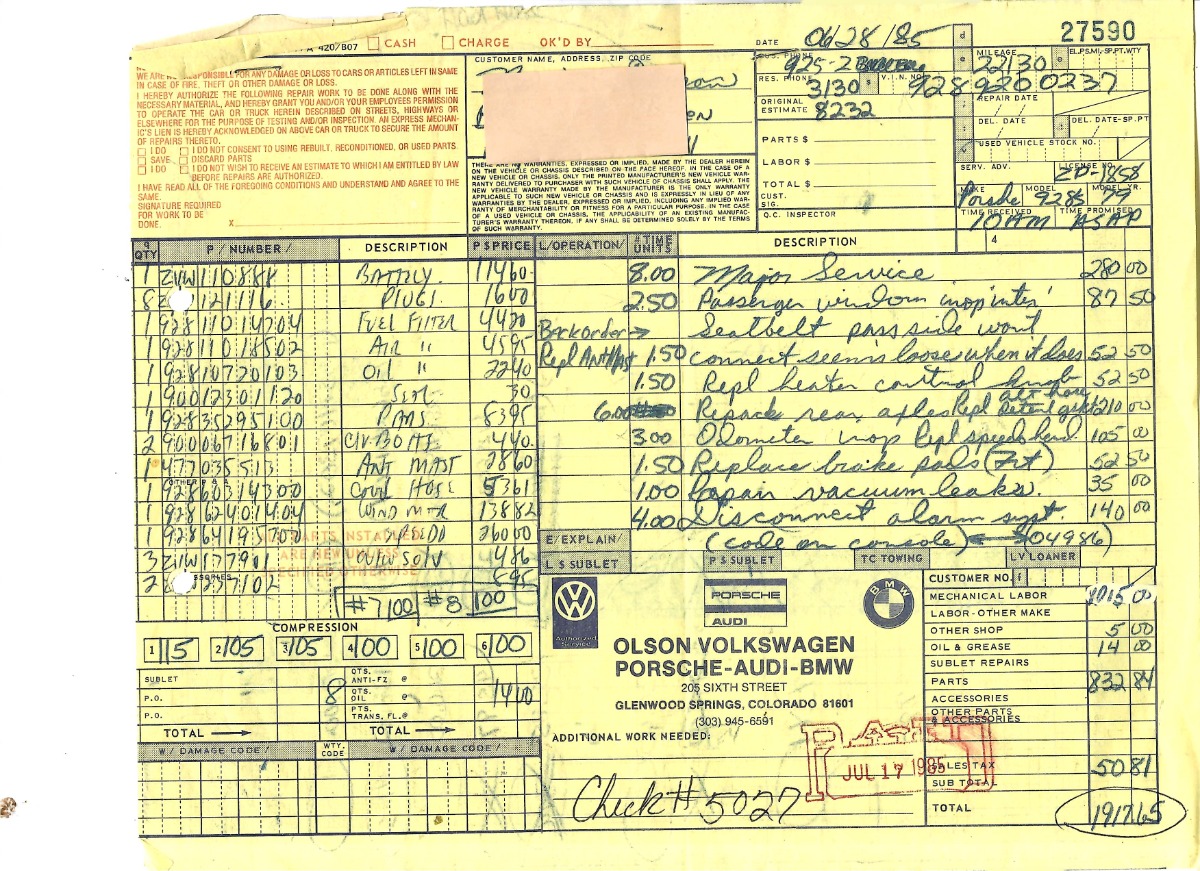 A 420/B07 CASH CHARGE OK'D BY
DATE 06/28/85
27590
WE ARE NOT RESPONSIBLE FOR ANY DAMAGE OR LOSS TO CARS OR ARTICLES LEFT IN SAME
IN CASE OF FIRE, THEFT OR OTHER DAMAGE OR LOSS.
I HEREBY AUTHORIZE THE FOLLOWING REPAIR WORK TO BE DONE ALONG WITH THE
NECESSARY MATERIAL, AND HEREBY GRANT YOU AND/OR YOUR EMPLOYEES PERMISSION
TO OPERATE THE CAR OR TRUCK HEREIN DESCRIBED ON STREETS, HIGHWAYS OR
ELSEWHERE FOR THE PURPOSE OF TESTING AND/OR INSPECTION. AN EXPRESS MECHAN-
IC'S LIEN IS HEREBY ACKNOWLEDGED ON ABOVE CAR OR TRUCK TO SECURE THE AMOUNT
OF REPAIRS THERETO.
I DO I DO NOT CONSENT TO USING REBUILT, RECONDITIONED, OR USED PARTS.
SAVE DISCARD PARTS
I DO I DO NOT WISH TO RECEIVE AN ESTIMATE TO WHICH I AM ENTITLED BY LAW
BEFORE REPAIRS ARE AUTHORIZED.
I HAVE READ ALL OF THE FOREGOING CONDITIONS AND UNDERSTAND AND AGREE TO THE
SAME.
SIGNATURE REQUIRED
FOR WORK TO BE
DONE. X
CUSTOMER NAME, ADDRESS, ZIP CODE
THERE ARE NO WARRANTIES, EXPRESSED OR IMPLIED, MADE BY THE DEALER HEREIN
ON THE VEHICLE OR CHASSIS DESCRIBED ON THE FACE HEREOF. IN THE CASE OF A
NEW VEHICLE OR CHASSIS, ONLY THE PRINTED MANUFACTURER'S NEW VEHICLE WAR-
RANTY DELIVERED TO PURCHASER WITH SUCH VEHICLE OR CHASSIS SHALL APPLY. THE
NEW VEHICLE WARRANTY MADE BY THE MANUFACTURER IS THE ONLY WARRANTY
APPLICABLE TO SUCH NEW VEHICLE OR CHASSIS AND IS EXPRESSLY IN LIEU OF ANY
WARRANTIES BY THE DEALER, EXPRESSED OR IMPLIED, INCLUDING ANY IMPLIED WAR-
RANTY OF MERCHANTABILITY OR FITNESS FOR A PARTICULAR PURPOSE. IN THE CASE
OF A USED VEHICLE OR CHASSIS, THE APPLICABILITY OF AN EXISTING MANUFAC-
TURER'S WARRANTY THEREON, IF ANY, SHALL BE DETERMINED SOLELY BY THE TERMS
OF SUCH WARRANTY.
BUS. PHONE 925-2
RES. PHONE 3130
ORIGINAL
ESTIMATE 8232
PARTS $
LABOR $
TOTAL $
CUST.
SIG.
Q.C. INSPECTOR
MILEAGE 22130
EL.PS.MI, SP.PT.WTY
V.I.N. NO. 9289200237
REPAIR DATE
DEL. DATE DEL. DATE-SP.PT
USED VEHICLE STOCK NO.
SERV. ADV. LICENSE NO. ZP-1858
MAKE Porshe MODEL 928s MODEL YR. 79
TIME RECEIVED 10AM TIME PROMISED ASAP
QTY P / NUMBER / DESCRIPTION P $ PRICE
1 ZVW110888 BATTRY 11460
8 121116 PLUGS 1600
1 92811014704 FUEL FILTER 4420
1 92811018502 AIR " 4595
1 92810720103 OIL " 2240
1 90012301120 SEAL 30
1 92835295100 PADS 8395
2 90006716801 CIV BOLTS 440
1 477035513 ANT MAST 2860
1 92860314300 COOL HOSE 5361
1 92862401404 WIND MTR 13882
1 92864195700 SPEEDO 26000
3 ZVW177901 486
2 237102 595
#7 100 #8 100
L/OPERATION/ # TIME UNITS DESCRIPTION 4
8.00 Major Service 280 00
2.50 Passenger window inop 'inter' 87 50
Backorder → Seatbelt pass side wont
Repl Ant Mast 1.50 connect seems loose when it does 52 50
1.50 Repl heater control knob 52 50
6.00 Repack rear axles Repl 210 00
3.00 Odometer inop Repl speed head 105 00
1.50 Replace brake pads (Frt) 52 50
1.00 Repair vacuum leaks. 35 00
4.00 Disconnect alarm syst. 140 00
(code on console) 04986)
E/EXPLAIN/
L $ SUBLET P $ SUBLET TC TOWING LV LOANER
COMPRESSION
1 115 2 105 3 105 4 100 5 100 6 100
SUBLET
P.O.
P.O.
TOTAL
QTS. ANTI-FZ @
8 QTS. OIL @ 1400
PTS. TRANS. FL. @
TOTAL
W / DAMAGE CODE / WTY. CODE W / DAMAGE CODE /
Authorized
Service
PORSCHE
AUDI
BMW
OLSON VOLKSWAGEN
PORSCHE-AUDI-BMW
205 SIXTH STREET
GLENWOOD SPRINGS, COLORADO 81601
(303) 945-6591
ADDITIONAL WORK NEEDED:
Check# 5027
PAID
JUL 17 1985
CUSTOMER NO.
MECHANICAL LABOR 1015 00
LABOR-OTHER MAKE
OTHER SHOP 5 00
OIL & GREASE 14 00
SUBLET REPAIRS
PARTS 832 84
ACCESSORIES
OTHER PARTS
& ACCESSORIES
SALES TAX 50 81
SUB TOTAL
TOTAL 1917.65